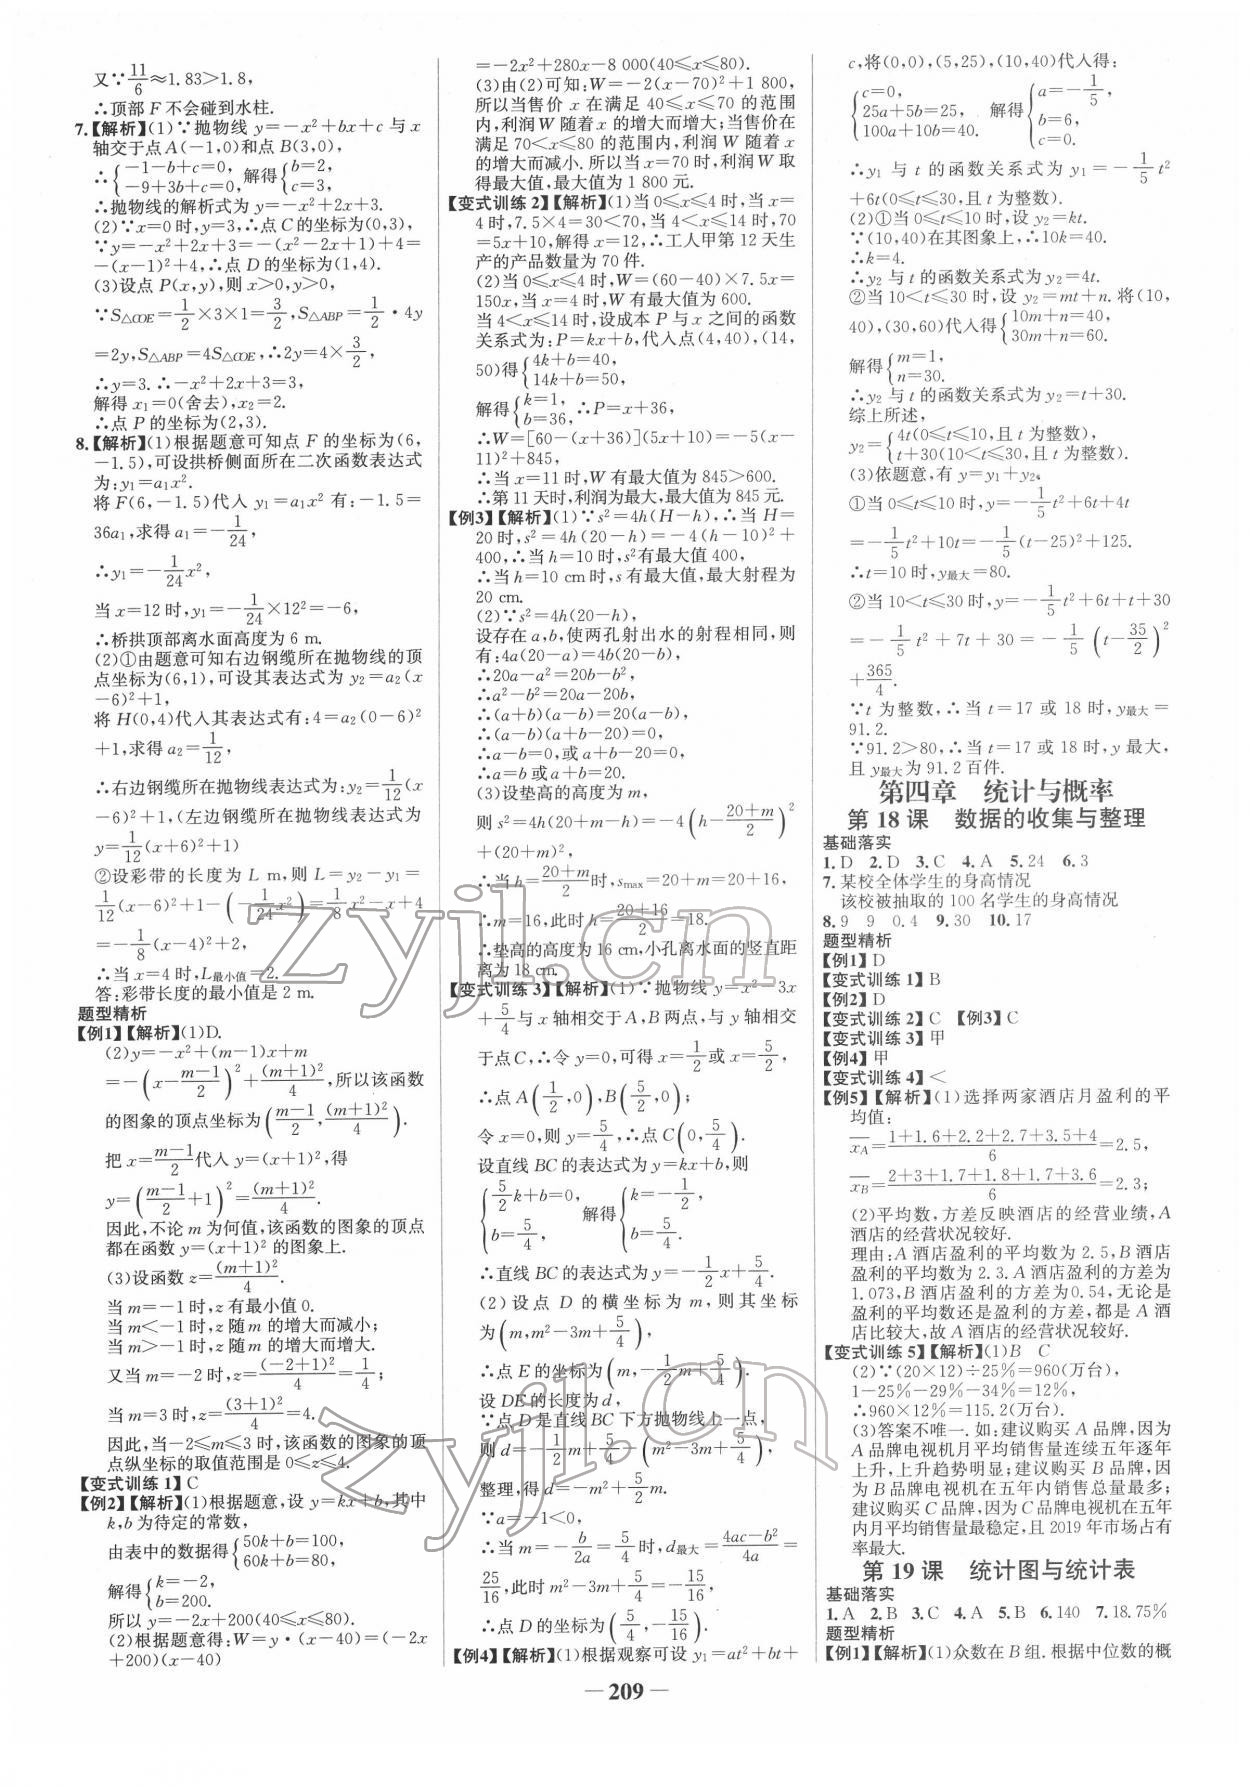 又∵11/6≈1.83>1.8,
∴顶部 F 不会碰到水柱.
7.【解析】(1)∵抛物线 y=-x²+bx+c 与 x
轴交于点 A(-1,0)和点 B(3,0),
∴{-1-b+c=0, -9+3b+c=0, 解得{b=2, c=3,
∴抛物线的解析式为 y=-x²+2x+3.
(2)∵x=0时,y=3,∴点 C 的坐标为(0,3),
∵y=-x²+2x+3=-(x²-2x+1)+4=
-(x-1)²+4,∴点 D 的坐标为(1,4).
(3)设点 P(x,y),则 x>0,y>0,
∵S△COE=1/2×3×1=3/2,S△ABP=1/2·4y
=2y,S△ABP=4S△COE,∴2y=4×3/2,
∴y=3.∴-x²+2x+3=3,
解得 x₁=0(舍去),x₂=2.
∴点 P 的坐标为(2,3).
8.【解析】(1)根据题意可知点 F 的坐标为(6,
-1.5),可设拱桥侧面所在二次函数表达式
为:y₁=a₁x².
将 F(6,-1.5)代入 y₁=a₁x² 有:-1.5=
36a₁,求得 a₁=-1/24,
∴y₁=-1/24x²,
当 x=12 时,y₁=-1/24×12²=-6,
∴桥拱顶部离水面高度为 6 m.
(2)①由题意可知右边钢缆所在抛物线的顶
点坐标为(6,1),可设其表达式为 y₂=a₂(x
-6)²+1,
将 H(0,4)代入其表达式有:4=a₂(0-6)²
+1,求得 a₂=1/12,
∴右边钢缆所在抛物线表达式为:y₂=1/12(x
-6)²+1,(左边钢缆所在抛物线表达式为
y=1/12(x+6)²+1)
②设彩带的长度为 L m,则 L=y₂-y₁=
1/12(x-6)²+1-(-1/24x²)=1/8x²-x+4
=-1/8(x-4)²+2,
∴当 x=4 时,L最小值=2.
答:彩带长度的最小值是 2 m.
题型精析
【例1】【解析】(1)D.
(2)y=-x²+(m-1)x+m
=-(x-(m-1)/2)²+(m+1)²/4,所以该函数
的图象的顶点坐标为((m-1)/2,(m+1)²/4).
把 x=(m-1)/2代入 y=(x+1)²,得
y=((m-1)/2+1)²=(m+1)²/4.
因此,不论 m 为何值,该函数的图象的顶点
都在函数 y=(x+1)² 的图象上.
(3)设函数 z=(m+1)²/4.
当 m=-1 时,z 有最小值 0.
当 m<-1 时,z 随 m 的增大而减小;
当 m>-1 时,z 随 m 的增大而增大.
又当 m=-2 时,z=(-2+1)²/4=1/4;
当 m=3 时,z=(3+1)²/4=4.
因此,当-2≤m≤3 时,该函数的图象的顶
点纵坐标的取值范围是 0≤z≤4.
【变式训练 1】C
【例2】【解析】(1)根据题意,设 y=kx+b,其中
k,b 为待定的常数,
由表中的数据得{50k+b=100, 60k+b=80,
解得{k=-2, b=200.
所以 y=-2x+200(40≤x≤80).
(2)根据题意得:W=y·(x-40)=(-2x
+200)(x-40)
=-2x²+280x-8 000(40≤x≤80).
(3)由(2)可知:W=-2(x-70)²+1 800,
所以当售价 x 在满足 40≤x≤70 的范围
内,利润 W 随着 x 的增大而增大;当售价在
满足 70<x≤80 的范围内,利润 W 随着 x
的增大而减小. 所以当 x=70 时,利润 W 取
得最大值,最大值为 1 800 元.
【变式训练 2】【解析】(1)当 0≤x≤4 时,当 x=
4 时,7.5×4=30<70,当 4<x≤14 时,70
=5x+10,解得 x=12,∴工人甲第 12 天生
产的产品数量为 70 件.
(2)当 0≤x≤4 时,W=(60-40)×7.5x=
150x,当 x=4 时,W 有最大值为 600.
当 4<x≤14 时,设成本 P 与 x 之间的函数
关系式为:P=kx+b,代入点(4,40),(14,
50)得{4k+b=40, 14k+b=50,
解得{k=1, b=36, ∴P=x+36,
∴W=[60-(x+36)](5x+10)=-5(x-
11)²+845,
∴当 x=11 时,W 有最大值为 845>600.
∴第 11 天时,利润为最大,最大值为 845 元.
【例3】【解析】(1)∵s²=4h(H-h),∴当 H=
20 时,s²=4h(20-h)=-4(h-10)²+
400,∴当 h=10 时,s²有最大值 400,
∴当 h=10 cm 时,s 有最大值,最大射程为
20 cm.
(2)∵s²=4h(20-h),
设存在 a,b,使两孔射出水的射程相同,则
有:4a(20-a)=4b(20-b),
∴20a-a²=20b-b²,
∴a²-b²=20a-20b,
∴(a+b)(a-b)=20(a-b),
∴(a-b)(a+b-20)=0,
∴a-b=0,或 a+b-20=0,
∴a=b 或 a+b=20.
(3)设垫高的高度为 m,
则 s²=4h(20+m-h)=-4(h-(20+m)/2)²
+(20+m)²,
∴当 h=(20+m)/2时,smax=20+m=20+16,
∴m=16,此时 h=(20+16)/2=18.
∴垫高的高度为 16 cm,小孔离水面的竖直距
离为 18 cm.
【变式训练 3】【解析】(1)∵抛物线 y=x²-3x
+5/4与 x 轴相交于 A,B 两点,与 y 轴相交
于点 C,∴令 y=0,可得 x=1/2或 x=5/2,
∴点 A(1/2,0),B(5/2,0);
令 x=0,则 y=5/4,∴点 C(0,5/4).
设直线 BC 的表达式为 y=kx+b,则
{5/2k+b=0, b=5/4, 解得{k=-1/2, b=5/4.
∴直线 BC 的表达式为 y=-1/2x+5/4.
(2)设点 D 的横坐标为 m,则其坐标
为(m,m²-3m+5/4),
∴点 E 的坐标为(m,-1/2m+5/4),
设 DE 的长度为 d,
∵点 D 是直线 BC 下方抛物线上一点,
则 d=-1/2m+5/4-(m²-3m+5/4),
整理,得 d=-m²+5/2m.
∵a=-1<0,
∴当 m=-b/2a=5/4时,d最大=(4ac-b²)/4a=
25/16,此时 m²-3m+5/4=-15/16,
∴点 D 的坐标为(5/4,-15/16).
【例4】【解析】(1)根据观察可设 y₁=at²+bt+
c,将(0,0),(5,25),(10,40)代入得:
{c=0, 25a+5b=25, 100a+10b=40. 解得{a=-1/5, b=6, c=0.
∴y₁ 与 t 的函数关系式为 y₁=-1/5t²
+6t(0≤t≤30,且 t 为整数).
(2)①当 0≤t≤10 时,设 y₂=kt.
∵(10,40)在其图象上,∴10k=40.
∴k=4.
∴y₂ 与 t 的函数关系式为 y₂=4t.
②当 10<t≤30 时,设 y₂=mt+n. 将(10,
40),(30,60)代入得{10m+n=40, 30m+n=60.
解得{m=1, n=30.
∴y₂ 与 t 的函数关系式为 y₂=t+30.
综上所述,
y₂={4t(0≤t≤10,且 t 为整数), t+30(10<t≤30,且 t 为整数).
(3)依题意,有 y=y₁+y₂.
①当 0≤t≤10 时,y=-1/5t²+6t+4t
=-1/5t²+10t=-1/5(t-25)²+125.
∴t=10 时,y最大=80.
②当 10<t≤30 时,y=-1/5t²+6t+t+30
=-1/5t²+7t+30=-1/5(t-35/2)²
+365/4.
∵t 为整数,∴当 t=17 或 18 时,y最大=
91.2.
∵91.2>80,∴当 t=17 或 18 时,y 最大,
且 y最大为 91.2 百件.
第四章 统计与概率
第 18 课 数据的收集与整理
基础落实
1. D 2. D 3. C 4. A 5. 24 6. 3
7. 某校全体学生的身高情况
该校被抽取的 100 名学生的身高情况
8. 9 9 0.4 9. 30 10. 17
题型精析
【例1】D
【变式训练 1】B
【例2】D
【变式训练 2】C 【例3】C
【变式训练 3】甲
【例4】甲
【变式训练 4】<
【例5】【解析】(1)选择两家酒店月盈利的平
均值:
x̄A=(1+1.6+2.2+2.7+3.5+4)/6=2.5,
x̄B=(2+3+1.7+1.8+1.7+3.6)/6=2.3;
(2)平均数,方差反映酒店的经营业绩,A
酒店的经营状况较好.
理由:A 酒店盈利的平均数为 2.5,B 酒店
盈利的平均数为 2.3. A 酒店盈利的方差为
1.073,B 酒店盈利的方差为 0.54,无论是
盈利的平均数还是盈利的方差,都是 A 酒
店比较大,故 A 酒店的经营状况较好.
【变式训练 5】【解析】(1)B C
(2)∵(20×12)÷25%=960(万台),
1-25%-29%-34%=12%,
∴960×12%=115.2(万台).
(3)答案不唯一. 如:建议购买 A 品牌,因为
A 品牌电视机月平均销售量连续五年逐年
上升,上升趋势明显;建议购买 B 品牌,因
为 B 品牌电视机在五年内销售总量最多;
建议购买 C 品牌,因为 C 品牌电视机在五年
内月平均销售量最稳定,且 2019 年市场占有
率最大.
第 19 课 统计图与统计表
基础落实
1. A 2. B 3. C 4. A 5. B 6. 140 7. 18.75%
题型精析
【例1】【解析】(1)众数在 B 组. 根据中位数的概
— 209 —
zyjl.cn
zyjl.cn